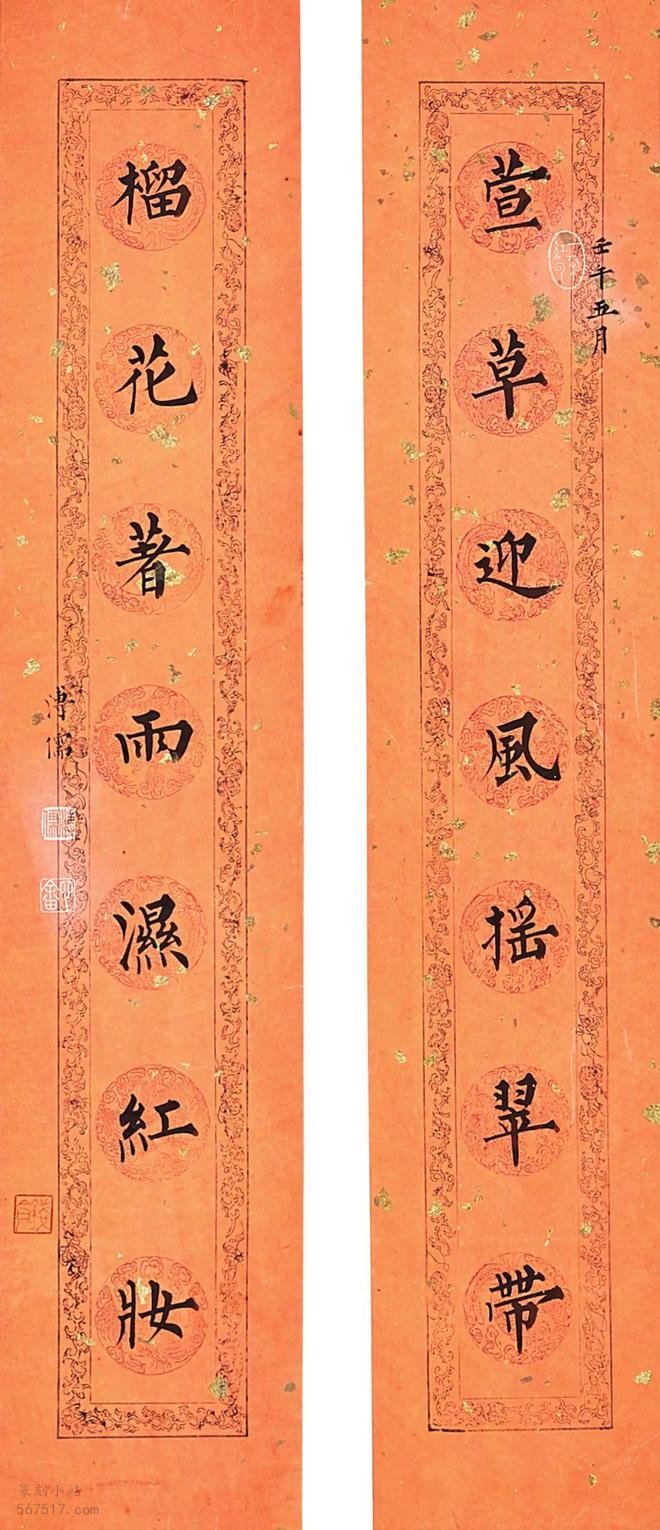 萱草迎風揺翠帶
壬午五月
榴花著雨濕紅妝
溥儒
溥儒
篆刻小站
567517.com